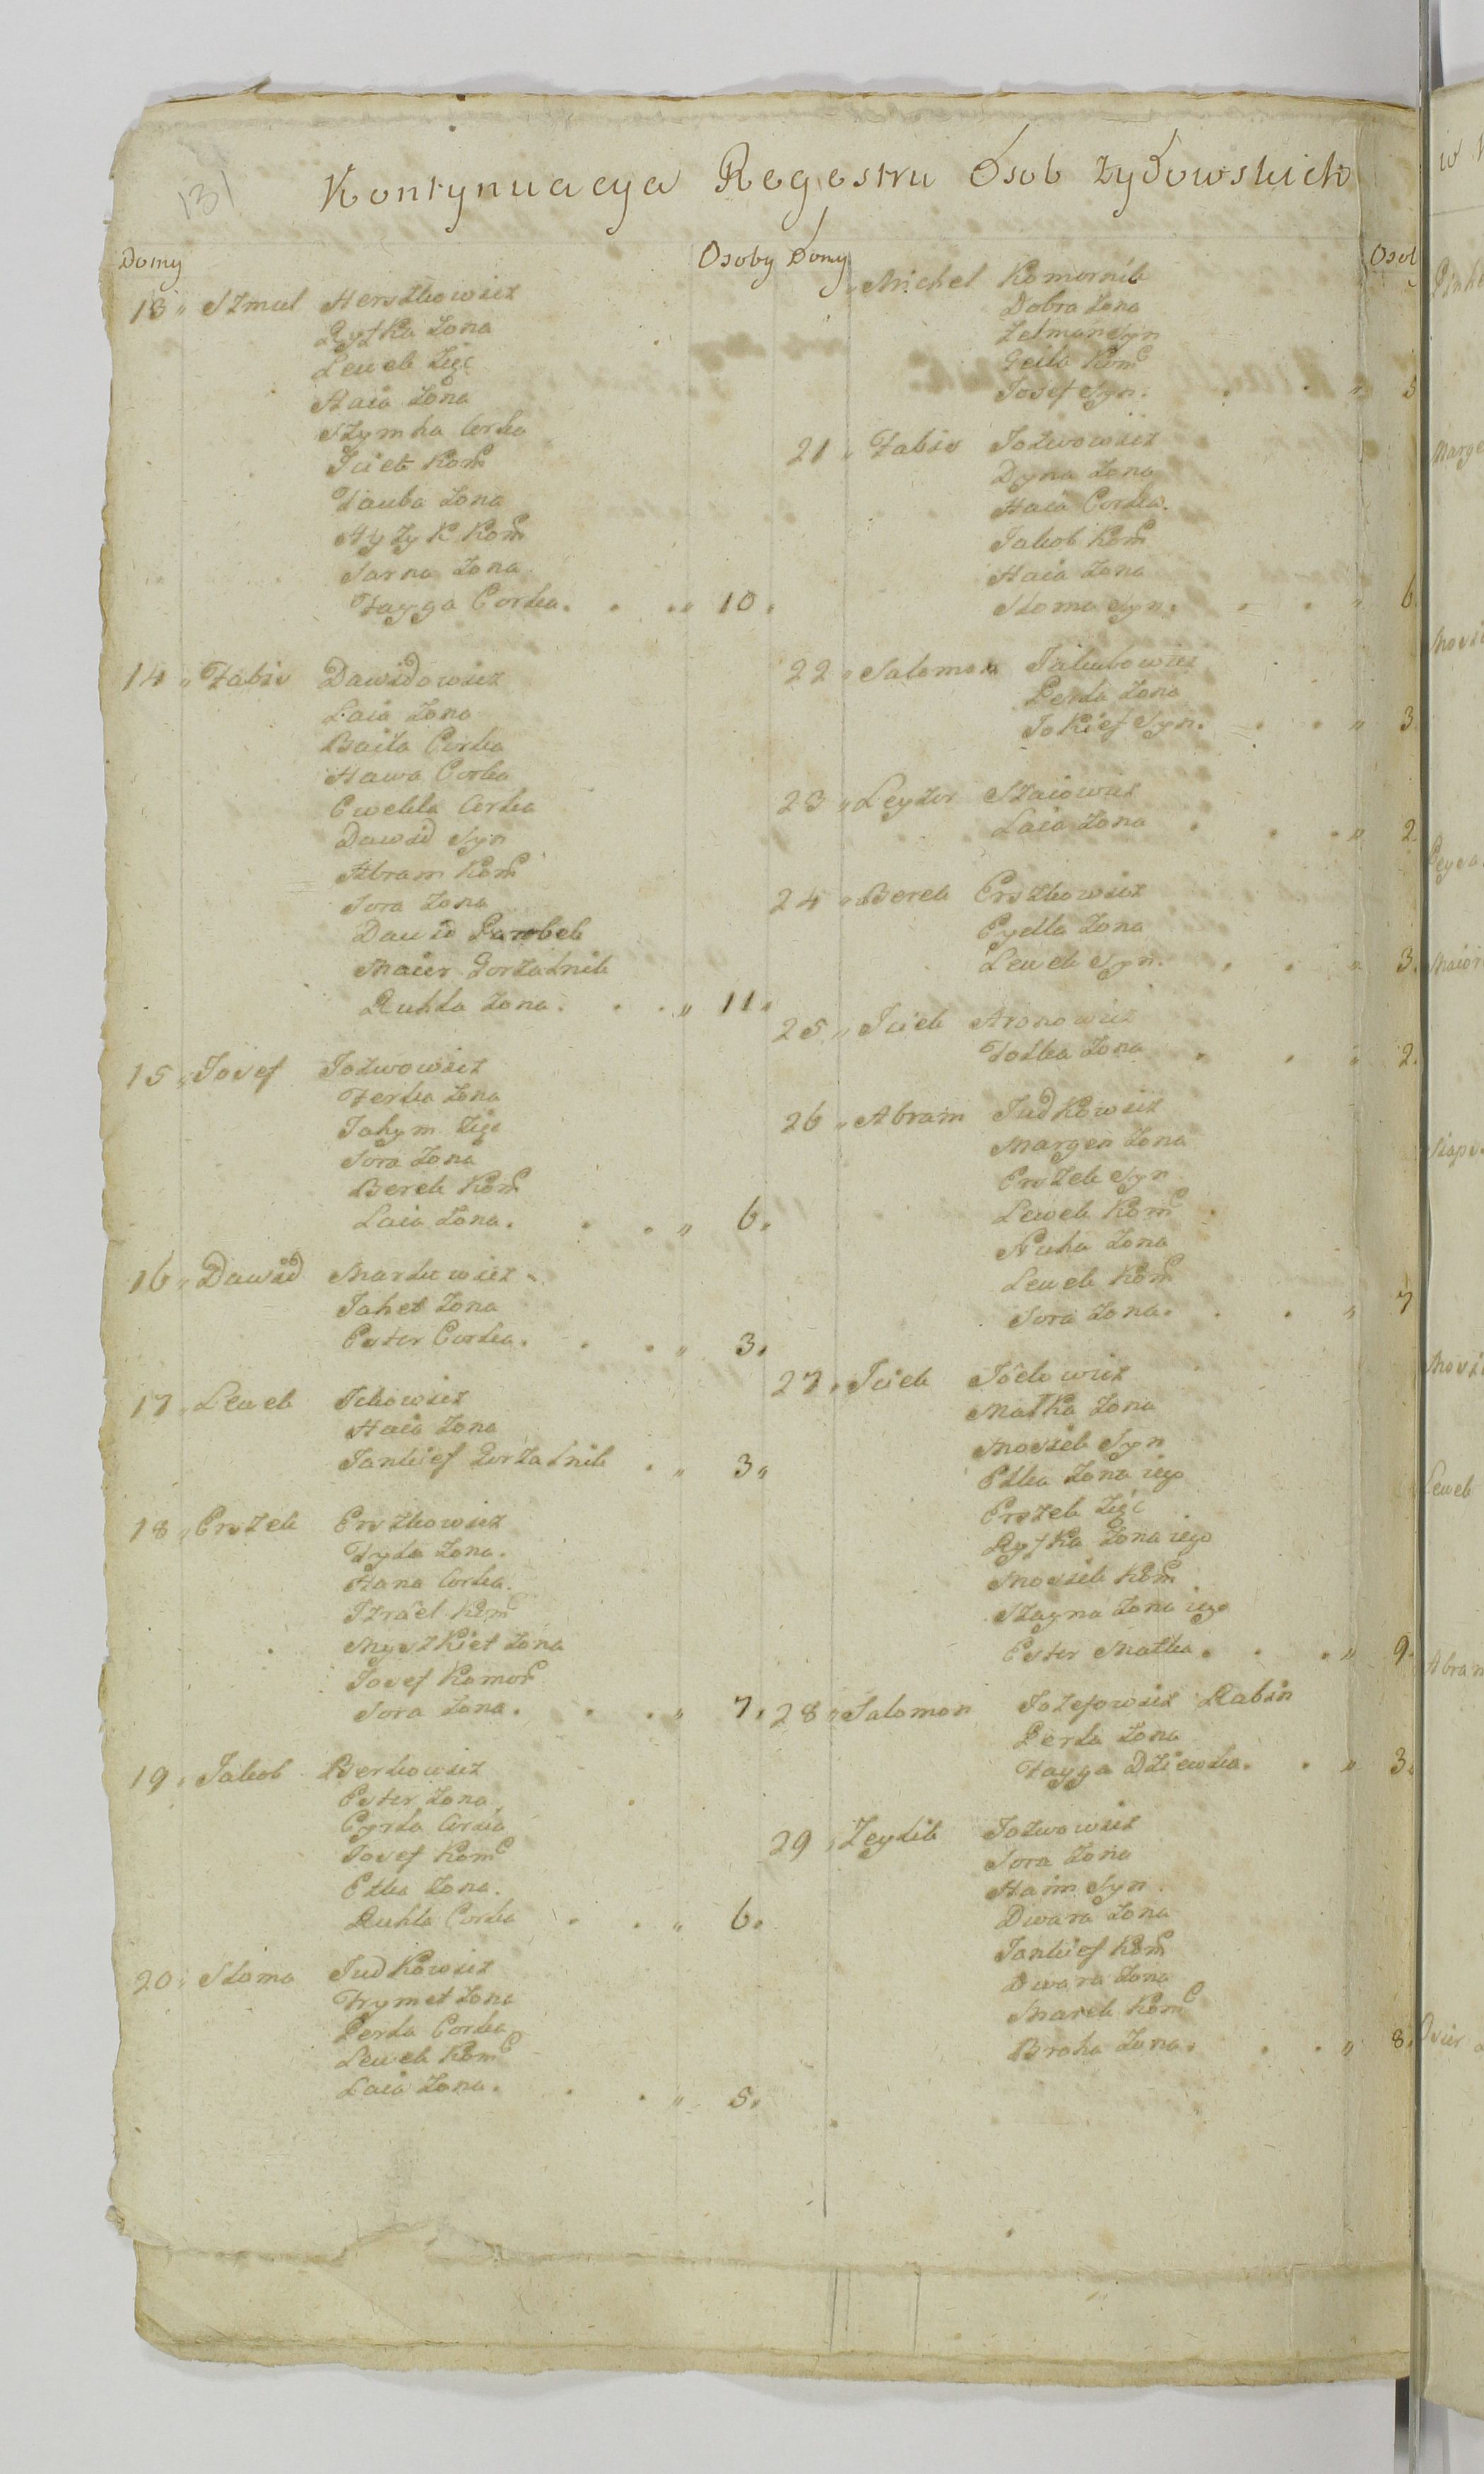 131
Kontynuacya Regestru Osob Zydowskich
Domy Osoby
13 „ Szmul Herszkowicz
Ryfka Zona
Lewek Zięc
Haia Zona
Szymka Corka
Iciek Kom
Tauba Zona
Hyzyk Kom
Sarna Zona
Fayga Corka . . . „ 10 „
14 „ Fabis Dawidowicz
Laia Zona
Baila Corka
Hawa Corka
Cwekla Corka
Dawid Syn
Abram Kom
Sora Zona
Dawid Parobek
Maier Gorzalnik
Ruhla Zona . . . „ 11 „
15 „ Josef Jozwowicz
Ferka Zona
Jahym Zięc
Sora Zona
Berek Kom
Laia Zona . . . „ 6 „
16 „ Dawid Markowicz
Jahet Zona
Ester Corka . . . „ 3 „
17 „ Lewek Ickowicz
Haia Zona
Jankief Gorzalnik . „ 3 „
18 „ Erszek Erszkowicz
Fyda Zona
Hana Corka
Izrael Kom
Myszkiet Zona
Josef Komor
Sora Zona . . . „ 7 „
19 „ Jakob Berkowicz
Ester Zona
Cyrla Corka
Josef Kom
Etka Zona
Ruhla Corka . . „ 6 „
20 „ Sloma Judkowicz
Frymet Zona
Perla Corka
Lewek Kom
Laia Zona . . . „ 5 „
Domy Osob
„ Michel Komornik
Dobra Zona
Zelman Syn
Geila Kom
Josef Syn . . . „ 5
21 „ Fabis Jozwowicz
Dyna Zona
Haia Corka
Jakob Kom
Haia Zona
Sloma Syn . . . „ 6
22 „ Salomon Jakubowicz
Perla Zona
Jokief Syn . . . „ 3
23 „ Leyzer Szaiowicz
Laia Zona . . . „ 2
24 „ Berek Erszkowicz
Cyella Zona
Lewek Syn . . . „ 3
25 „ Iciek Aronowicz
Toska Zona . . „ 2
26 „ Abram Judkowicz
Margen Zona
Erszek Syn
Lewek Kom
Nuha Zona
Lewek Kom
Sora Zona . . . „ 7
27 „ Iciek Joelowicz
Matka Zona
Mosiek Syn
Etka Zona iego
Erszek Zięć
Ryfka Zona iego
Mosiek Kom
Szayna Zona iego
Ester Matka . . . „ 9
28 „ Salomon Jozefowicz Rabin
Perla Zona
Fayga Dziewka . . „ 3
29 „ Zeylik Jozwowicz
Sora Zona
Haim Syn
Dwara Zona
Jankief Kom
Dwara Zona
Marek Kom
Broha Zona . . . „ 8
Lewek
Abram